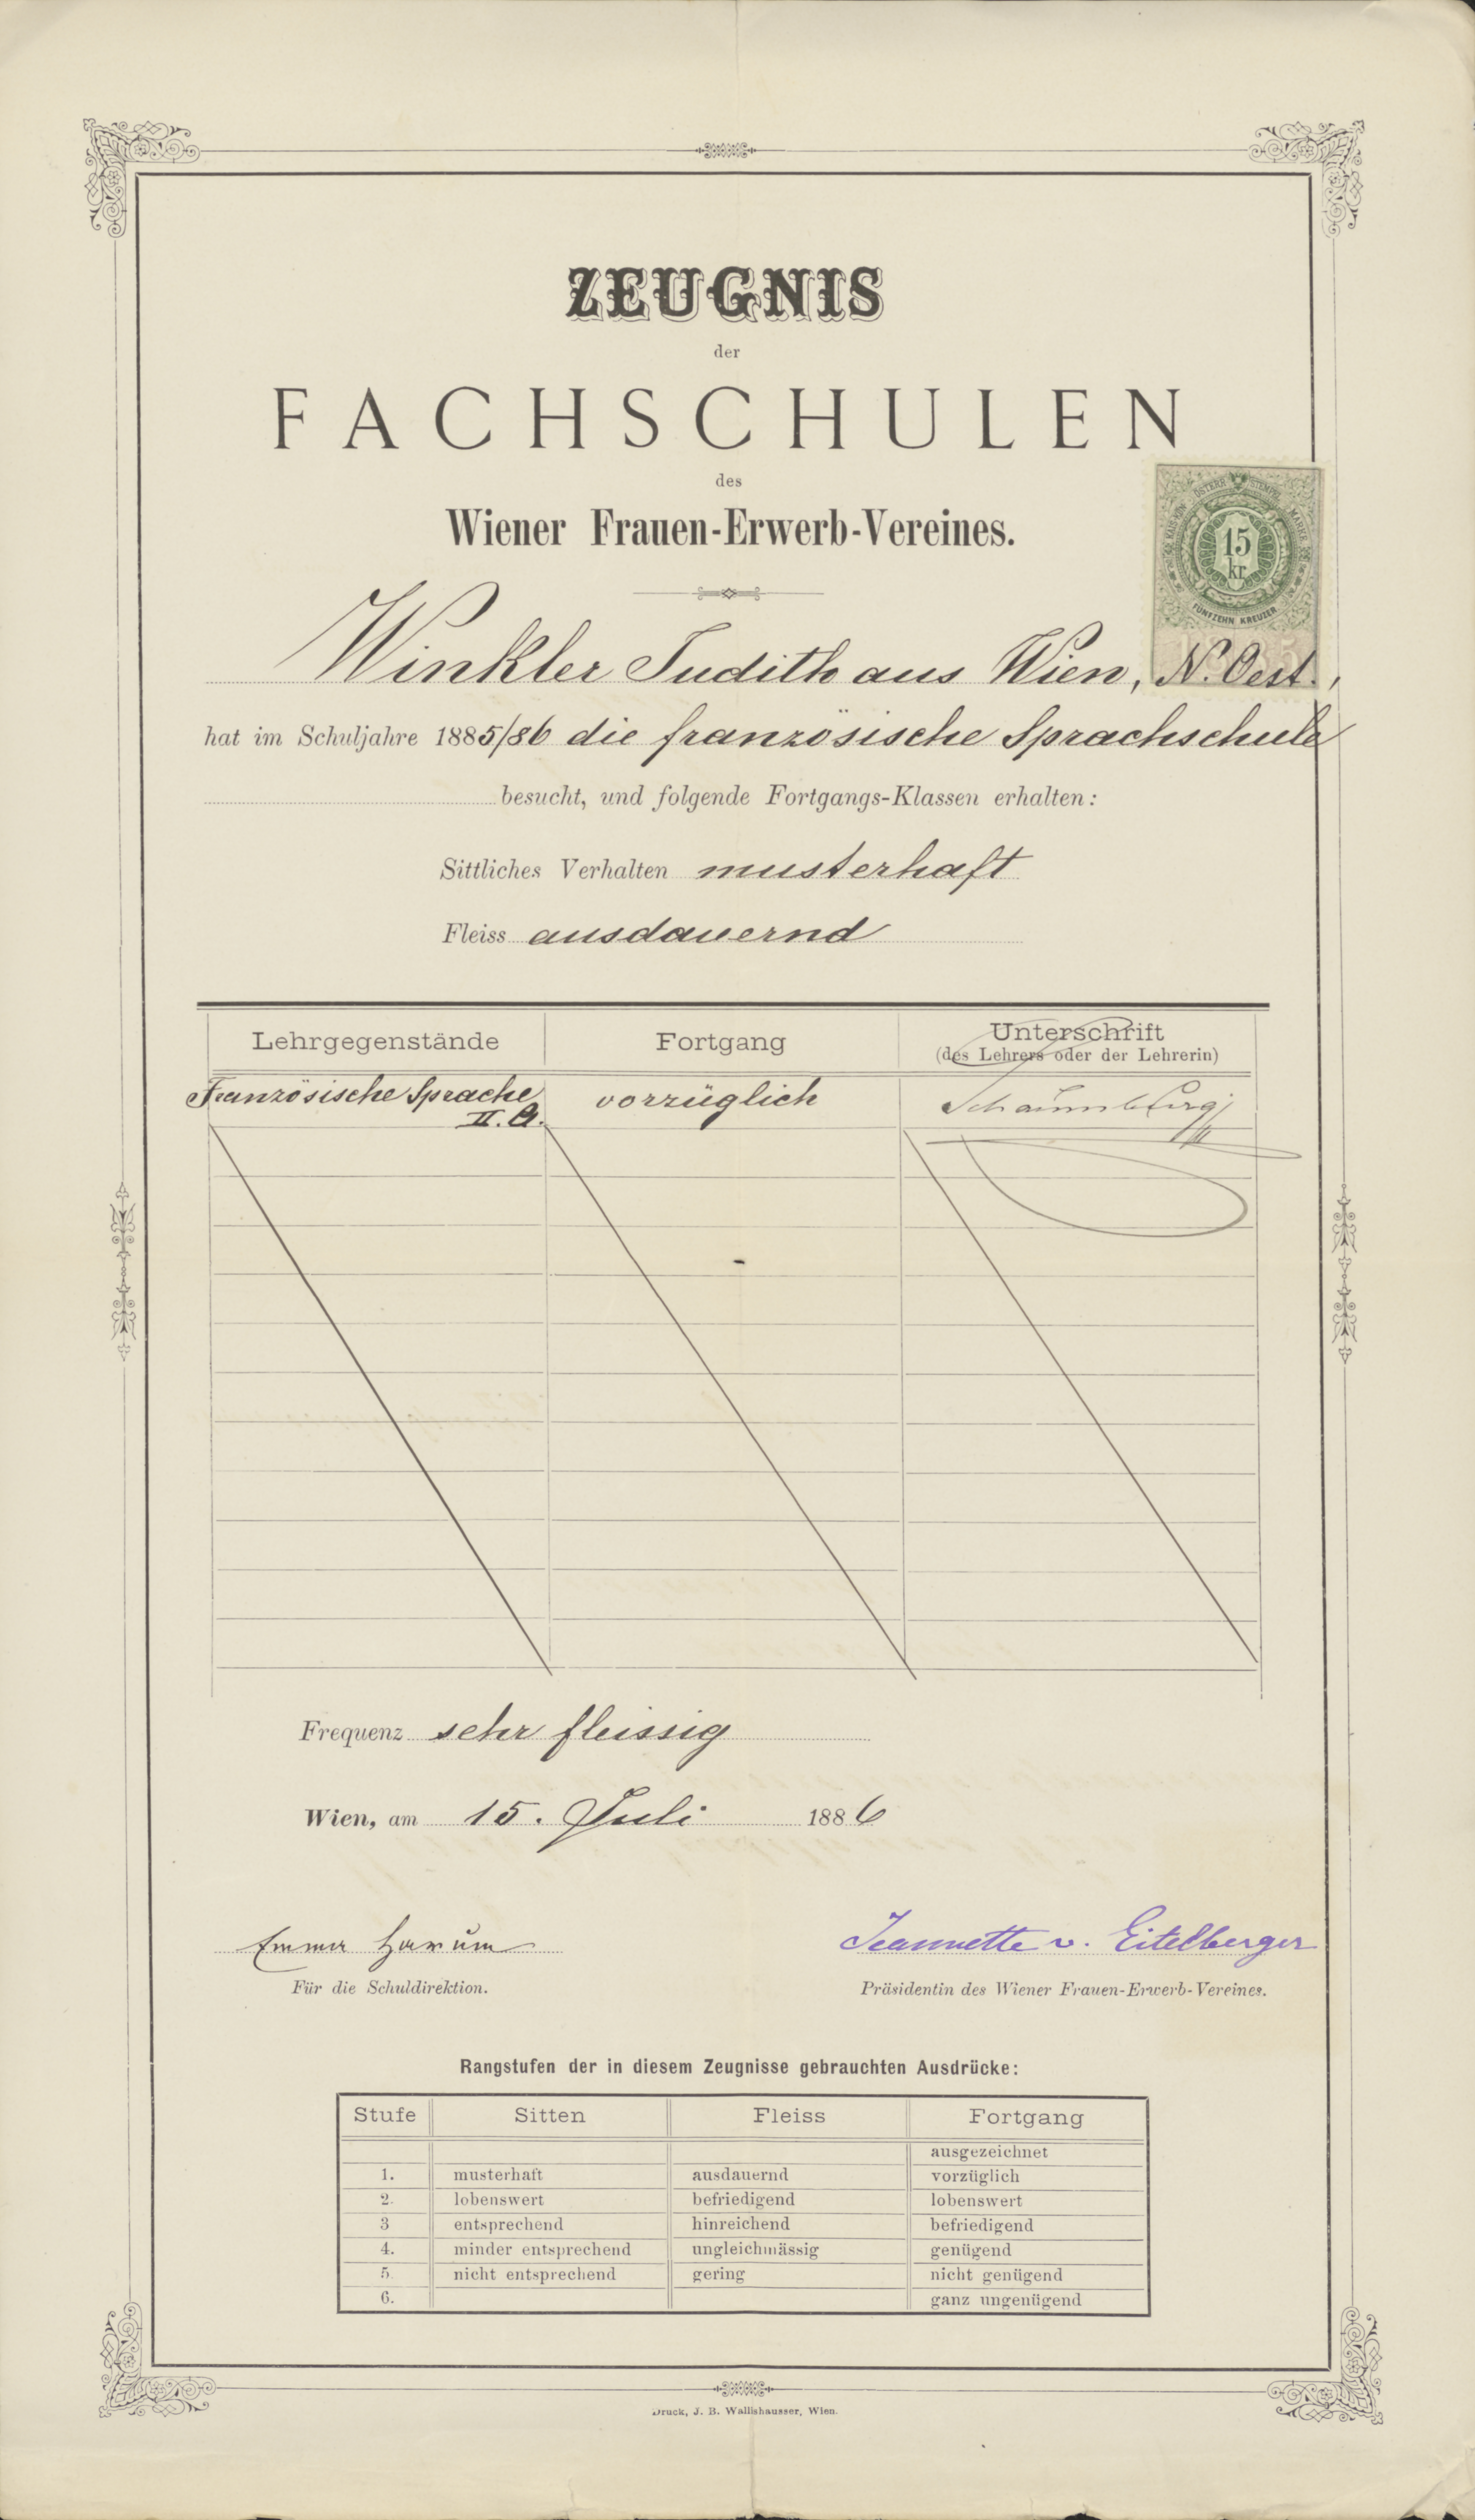 ZEUGNIS
der
FACHSCHULEN
des
Wiener Frauen-Erwerb-Vereines.
KAIS. KÖN. ÖSTERR. STEMPEL MARKE
15
kr
FÜNFZEHN KREUZER
Winkler Judith aus Wien, N. Oest.,
hat im Schuljahre 1885/86 die französische Sprachschule
besucht, und folgende Fortgangs-Klassen erhalten:
Sittliches Verhalten musterhaft
Fleiss ausdauernd
Lehrgegenstände Fortgang Unterschrift
(des Lehrers oder der Lehrerin)
Französische Sprache vorzüglich Schaumburg
II. A.
Frequenz sehr fleissig
Wien, am 15. Juli 1886
Emma Harum Jeannette v. Eitelberger
Für die Schuldirektion. Präsidentin des Wiener Frauen-Erwerb-Vereines.
Rangstufen der in diesem Zeugnisse gebrauchten Ausdrücke:
Stufe Sitten Fleiss Fortgang
ausgezeichnet
1. musterhaft ausdauernd vorzüglich
2. lobenswert befriedigend lobenswert
3 entsprechend hinreichend befriedigend
4. minder entsprechend ungleichmässig genügend
5. nicht entsprechend gering nicht genügend
6. ganz ungenügend
Druck, J. B. Wallishausser, Wien.